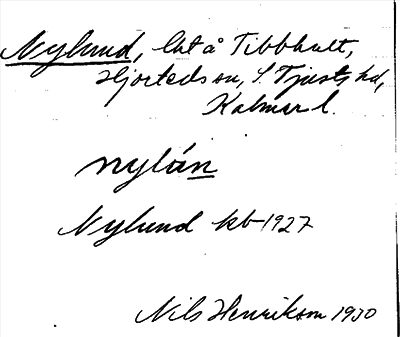 Nylund, lht å Tibbhult,
Hjorteds sn, S. Tjusts hd,
Kalmar l.
nylán
Nylund kb 1927
Nils Henrikson 1930